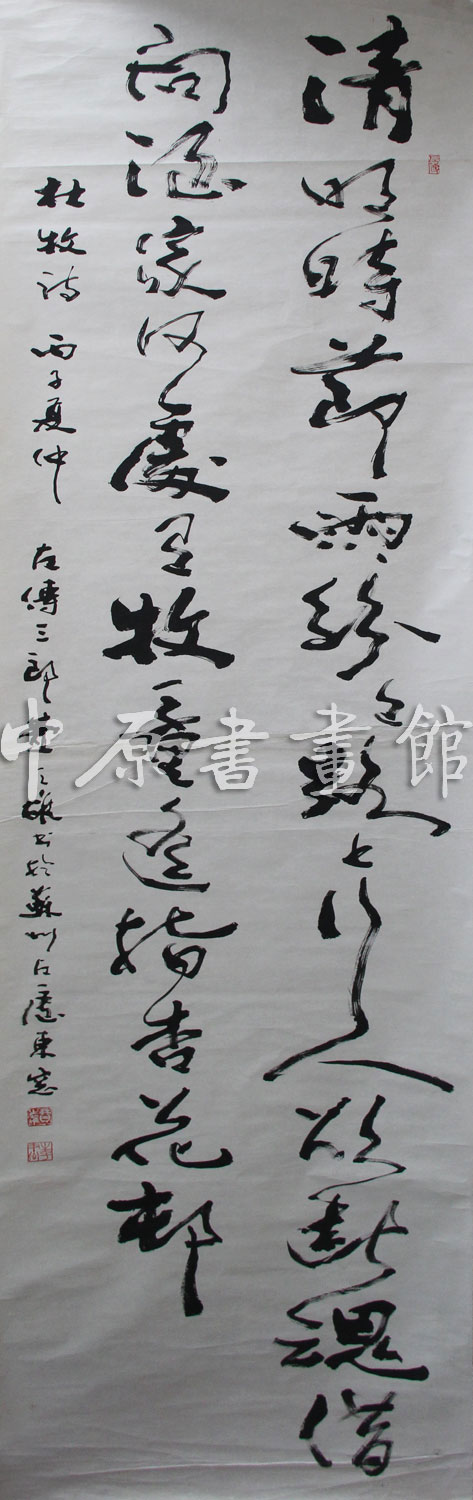 清明時節雨紛々路上行人欲斷魂借
問酒家何處有牧童遙指杏花邨
杜牧詩 丙子夏仲 左傳三郎 書於蘇州 東窓
中原書畫館